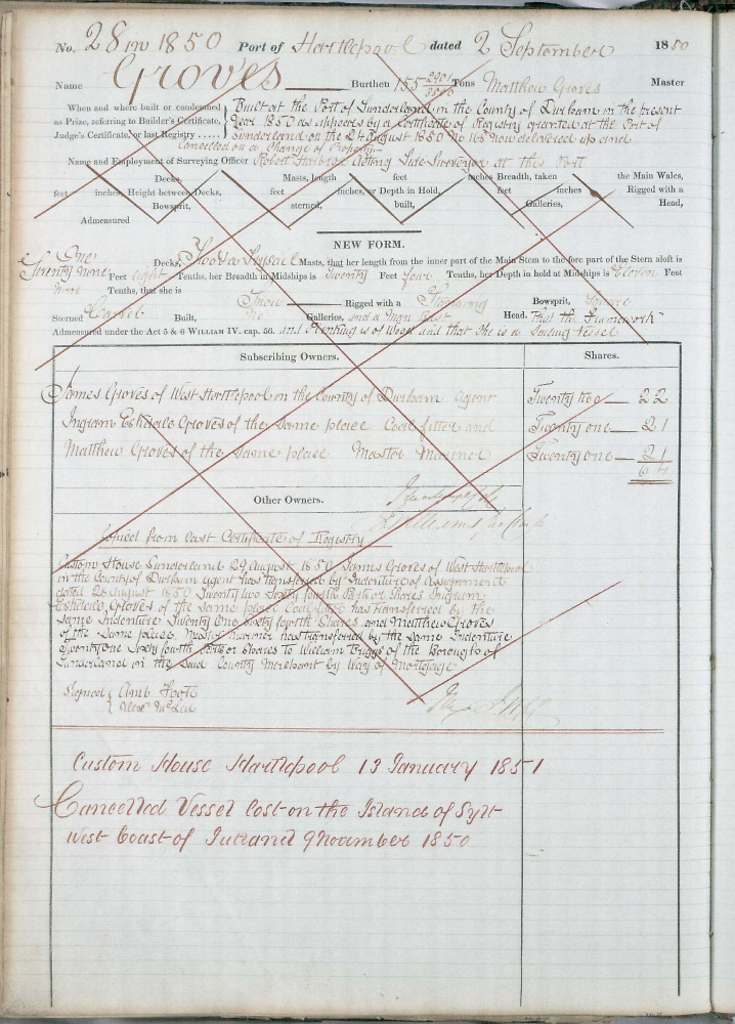 No. 28 in 1850 Port of Hartlepool dated 2 September 1850
Name Groves Burthen 155 2901/3500 Tons Matthew Groves Master
When and where built or condemned as Prize, referring to Builder's Certificate, Judge's Certificate, or last Registry .....
Built at the Port of Sunderland in the County of Durham in the present
Year 1850 as appears by a Certificate of Registry granted at the Port of
Sunderland on the 24 August 1850 No 165 now delivered up and
Cancelled on a Change of Property
Name and Employment of Surveying Officer Robert Acting Tide Surveyor at this Port
Decks, Masts, length feet inches, Breadth, taken the Main Wales,
feet inches, Height between Decks, feet inches, or Depth in Hold, feet inches Rigged with a
Bowsprit, sterned, built, Galleries, Head,
Admeasured
NEW FORM.
One Decks, Two Masts, that her length from the inner part of the Main Stem to the fore part of the Stern aloft is
Seventy nine Feet eight Tenths, her Breadth in Midships is Twenty Feet four Tenths, her Depth in hold at Midships is Eleven Feet
nine Tenths, that she is Snow Rigged with a Standing Bowsprit, Square
Sterned Carvel Built, No Galleries, and a Man Bust Head. That the Framework
Admeasured under the Act 5 & 6 WILLIAM IV. cap. 56. and Planking is of Wood and that She is a Sailing Vessel
Subscribing Owners. Shares.
James Groves of West Hartlepool in the County of Durham Agent Twenty two 22
Ingram Eskdale Groves of the same place Coal fitter and Twenty one 21
Matthew Groves of the same place Master Mariner Twenty one 21
64
Other Owners.
Copied from last Certificate of Registry
Custom House Sunderland 29 August 1850 James Groves of West Hartlepool
in the County of Durham Agent has transferred by Indenture of Assignment
dated 28 August 1850 Twenty two Sixty fourth Parts or Shares Ingram
Eskdale Groves of the same place Coal fitter has transferred by the
same Indenture Twenty One Sixty fourth Shares and Matthew Groves
of the same place Master Mariner has transferred by the same Indenture
Twenty One Sixty fourth Parts or Shares to William Briggs of the Borough of
Sunderland in the said County Merchant by Way of Mortgage
Signed
Custom House Hartlepool 13 January 1851
Cancelled Vessel lost on the Island of Sylt
West Coast of Jutland 9 November 1850